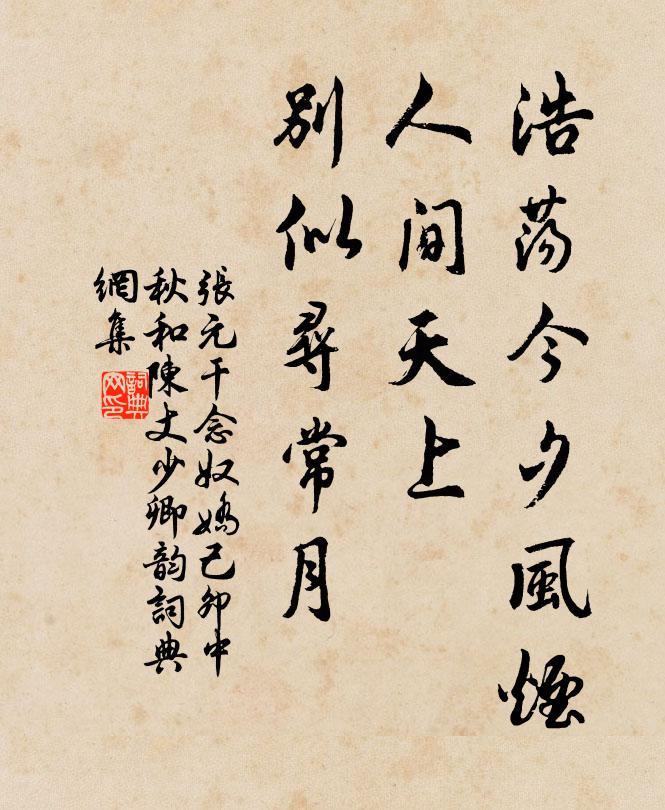 浩蕩今夕風煙
人間天上
別似尋常月
張元干念奴嬌己卯中
秋和陳丈少卿韵詞典
網集
詞典網印